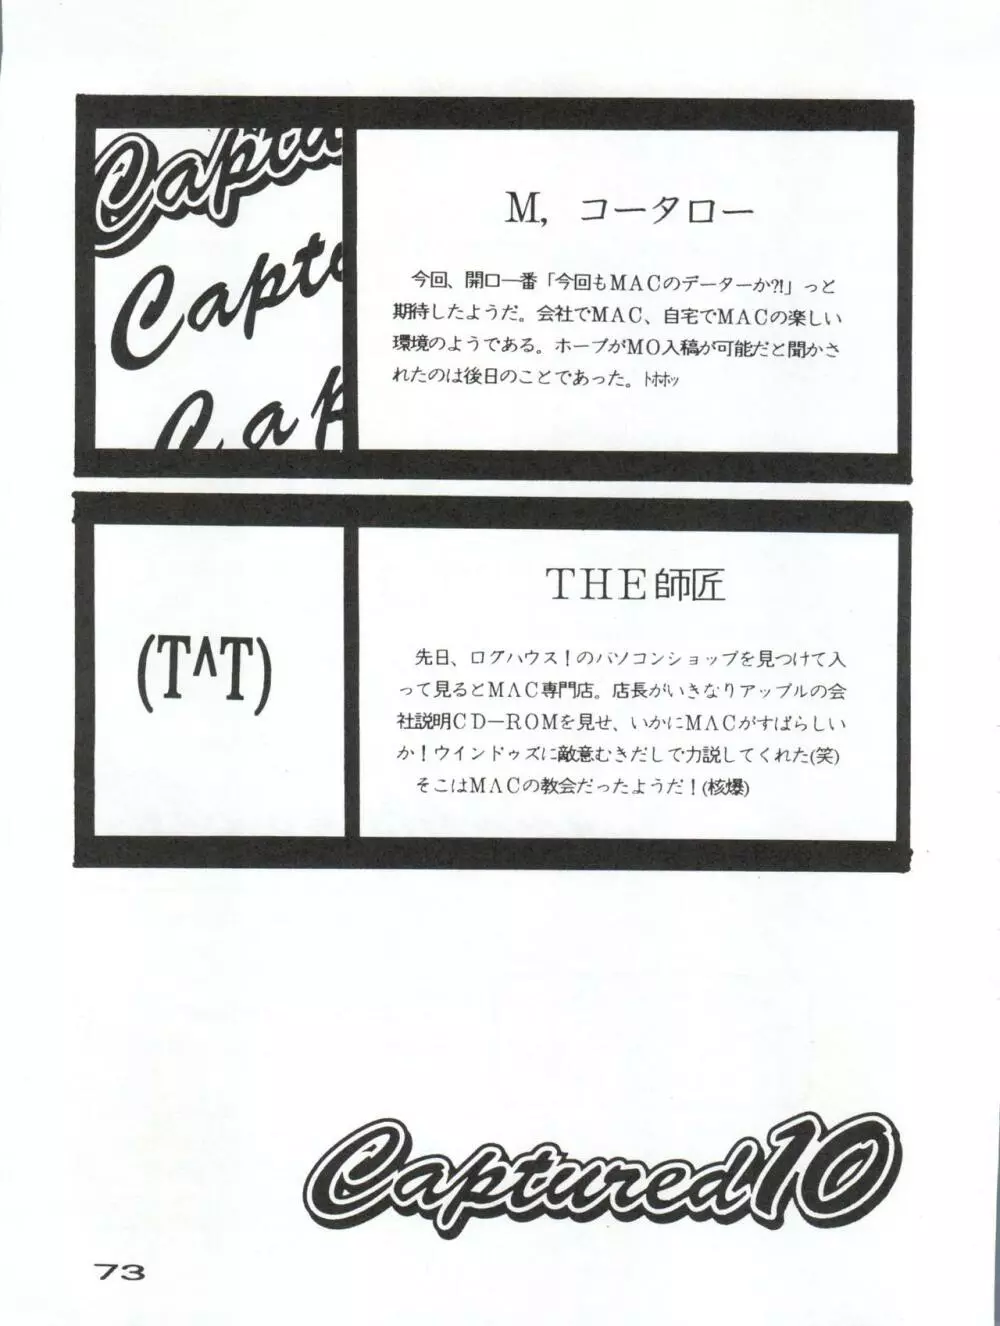 Captu
Captu
Cap
M, コータロー
今回、開口一番「今回もMACのデーターか?!」っと
期待したようだ。会社でMAC、自宅でMACの楽しい
環境のようである。ホープがMO入稿が可能だと聞かさ
れたのは後日のことであった。ﾄﾎﾎｯ
(T^T)
THE師匠
先日、ログハウス!のパソコンショップを見つけて入
って見るとMAC専門店。店長がいきなりアップルの会
社説明CD－ROMを見せ、いかにMACがすばらしい
か!ウインドゥズに敵意むきだしで力説してくれた(笑)
そこはMACの教会だったようだ!(核爆)
Captured10
73